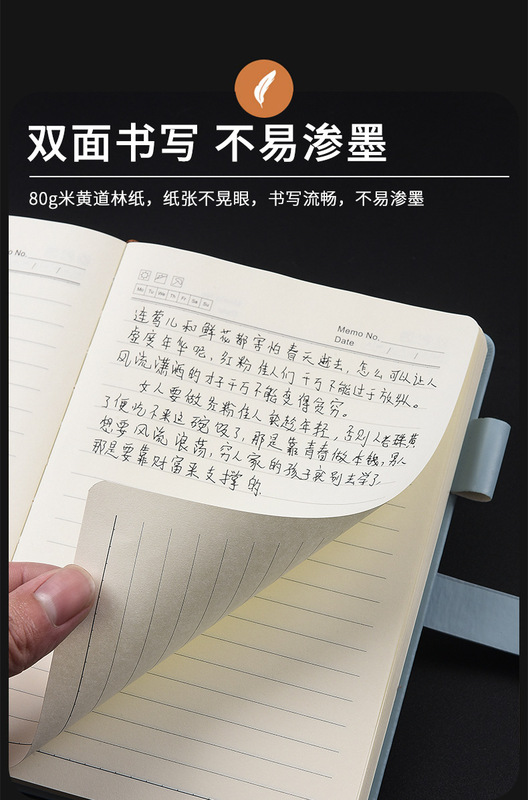 双面书写 不易渗墨
80g米黄道林纸，纸张不晃眼，书写流畅，不易渗墨
No.
/ /
Mo Tu We Th Fr Sa Su
Memo No.
Date / /
连莺儿和鲜花都害怕春天逝去，怎么可以让人
虚度年华呢，红粉佳人们千万不能过于放纵。
风流潇洒的才子千万不能变得贫穷。
女人要做红粉佳人要趁年轻，否则人老珠黄
了便吃不来这碗饭了，那是靠青春做本钱，男人
想要风流浪荡，穷人家的孩子就别去学了
那是要靠财富来支撑的。